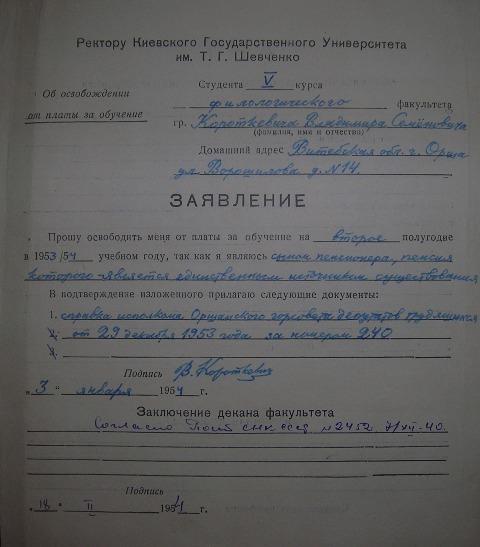 Ректору Киевского Государственного Университета
им. Т. Г. Шевченко
Студента V курса
Об освобождении
от платы за обучение
филологического факультета
гр. Короткевича Владимира Семёновича
(фамилия, имя и отчество)
Домашний адрес Витебская обл. г. Орша
ул Ворошилова д. №14.
ЗАЯВЛЕНИЕ
Прошу освободить меня от платы за обучение на второе полугодие
в 1953/54 учебном году, так как я являюсь сыном пенсионера, пенсия
которого является единственным источником существования
В подтверждение изложенного прилагаю следующие документы:
1. справка исполкома Оршанского горсовета депутатов трудящихся
2. от 29 декабря 1953 года за номером 240
3.
Подпись В. Короткевич
„ 3 " января 1954 г.
Заключение декана факультета
Согласно Пост СНК СССР №2452 7/XII-40.
Подпись
„ 18 " II 1954 г.